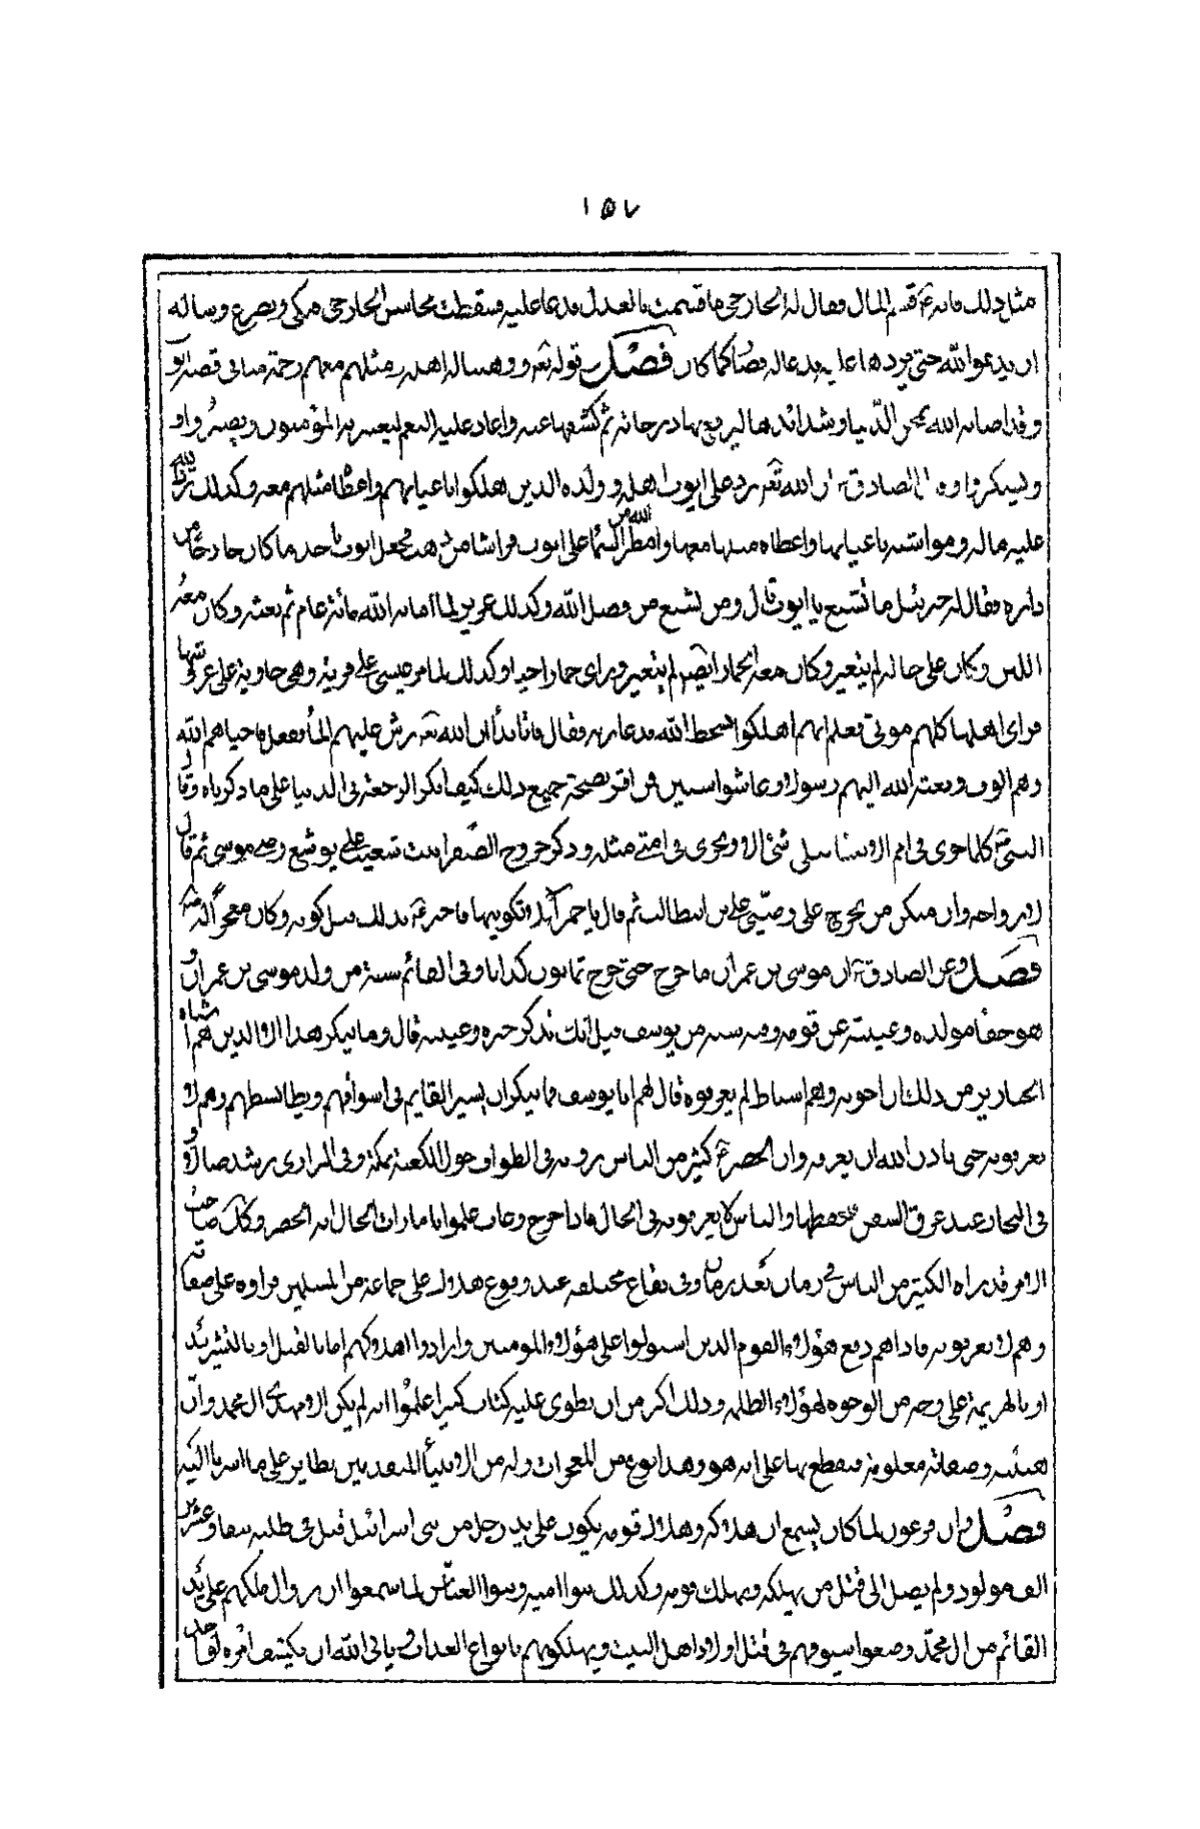 ١٥٧
مثل ذلك فانه ع قسم المال فقال له الخارجي ما قسمت بالعدل فدعا عليه فسقطت محاسن الخارجي فبكى وتضرع وساله
ان يدعو الله حتى يردها عليه فدعا له فصار كما كان فصل قوله تع ووهبنا له اهله ومثلهم معهم رحمة منا في قصة ايوب
وقد اصابه الله بمحن الدنيا وشدائدها ليرفع بها درجاته ثم كشفها عنه واعاد عليه النعم ليعتبر به المؤمنون ويصبروا و
ويشكروا وعن الصادق ع ان الله تع رد على ايوب اهله وولده الذين هلكوا باعيانهم واعطاه مثلهم معه وكذلك رد الله
عليه ماله ومواشيه باعيانها واعطاه مثلها معها وامطر الله من السماء على ايوب فراشا من ذهب فجعل ايوب ياخذ ما كان خارجا من
داره فقال له جبرئيل ما تشبع يا ايوب قال ومن يشبع من فضل الله وكذلك عزير لما اماته الله مائة عام ثم بعثه وكان معه
اللبن وكان على حاله لم يتغير وكان معه الحمار ايضا لم يتغير وراى حمارا حيا وكذلك لما مر عيسى على قرية وهي خاوية على عروشها
فراى اهلها كلهم موتى فعلم انهم اهلكوا بسخط الله فدعا ربه فقال فاتاه نداء ان الله تع رش عليهم الماء ففعل فاحياهم الله
وهم الوف وبعثه الله اليهم رسولا وعاشوا سنين فمن اقر بصحة جميع ذلك كيف انكر الرجعة في الدنيا على ما ذكرناه وقال
النبي ص كلما جرى في امم الانبياء قبلي شئ الا ويجري في امتي مثله وذكر خروج الصفراء بنت شعيب على يوشع وصي موسى ثم قال
لازواجه وان منكن من يخرج على وصيي علي بن ابيطالب ثم قال يا حميراء لا تكونيها فاخبر ع بذلك قبل كونه وكان معجزا له
فصل وعن الصادق ع ان موسى بن عمران ما خرج حتى خرج ثمانون كذابا وفي القائم سنة من ولد موسى بن عمران و
هو خفاء مولده وغيبته عن قومه وفيه سنة من يوسف قيل انك تذكر خبره وغيبته قال وما ينكر هذا الا الذين هم اشباه
الخنازير من ذلك ان اخوته وهم اسباط لم يعرفوه قال لهم انا يوسف فما ينكر ان يسير القايم في اسواقهم ويطا بسطهم وهم لا
يعرفونه حتى ياذن الله ان يعرفه وان الخضر ع كثير من الناس يرونه في الطواف حول الكعبة بمكة وفي البراري يرشد ضالا و
في البحار عند غرق السفن يحفظها والناس لا يعرفونه في الحال فاذا خرج وغاب علموا بامارات الحال انه الخضر وكان صاحب
الامر قد راه الكثير من الناس في زمان بعد زمان وفي بقاع مختلفة عند وقوع هول على جماعة من المسلمين فراوه على صفاته
وهم لا يعرفونه فاذا هم دفع هؤلاء القوم الذين استولوا على هؤلاء المؤمنين وارادوا اهلاكهم اما بالقتل او بالتشريد
او بالهزيمة على وجه من الوجوه لهؤلاء الظلمة وذلك اكثر من ان يطوى عليه كتاب كبير اعلموا انه لم يكن الا مهدي ال محمد وان
هيئته وصفاته معلومة فيقطع بها على انه هو وهذا نوع من المعجزات وله من الانبياء المتقدمين نظاير على ما اشرنا اليه
فصل وان فرعون لما كان يسمع ان هلاكه وهلاك قومه يكون على يد رجل من بني اسرائيل قتل في طلبه نيفا وعشرين
الف مولود ولم يصل الى قتل من يهلكه ويهلك قومه وكذلك بنوا امية وبنوا العباس لما سمعوا ان زوال ملكهم على يد
القائم من ال محمد وضعوا سيوفهم في قتل اولاد اهل البيت ويهلكونهم بانواع العذاب ويابى الله ان يكشف امره